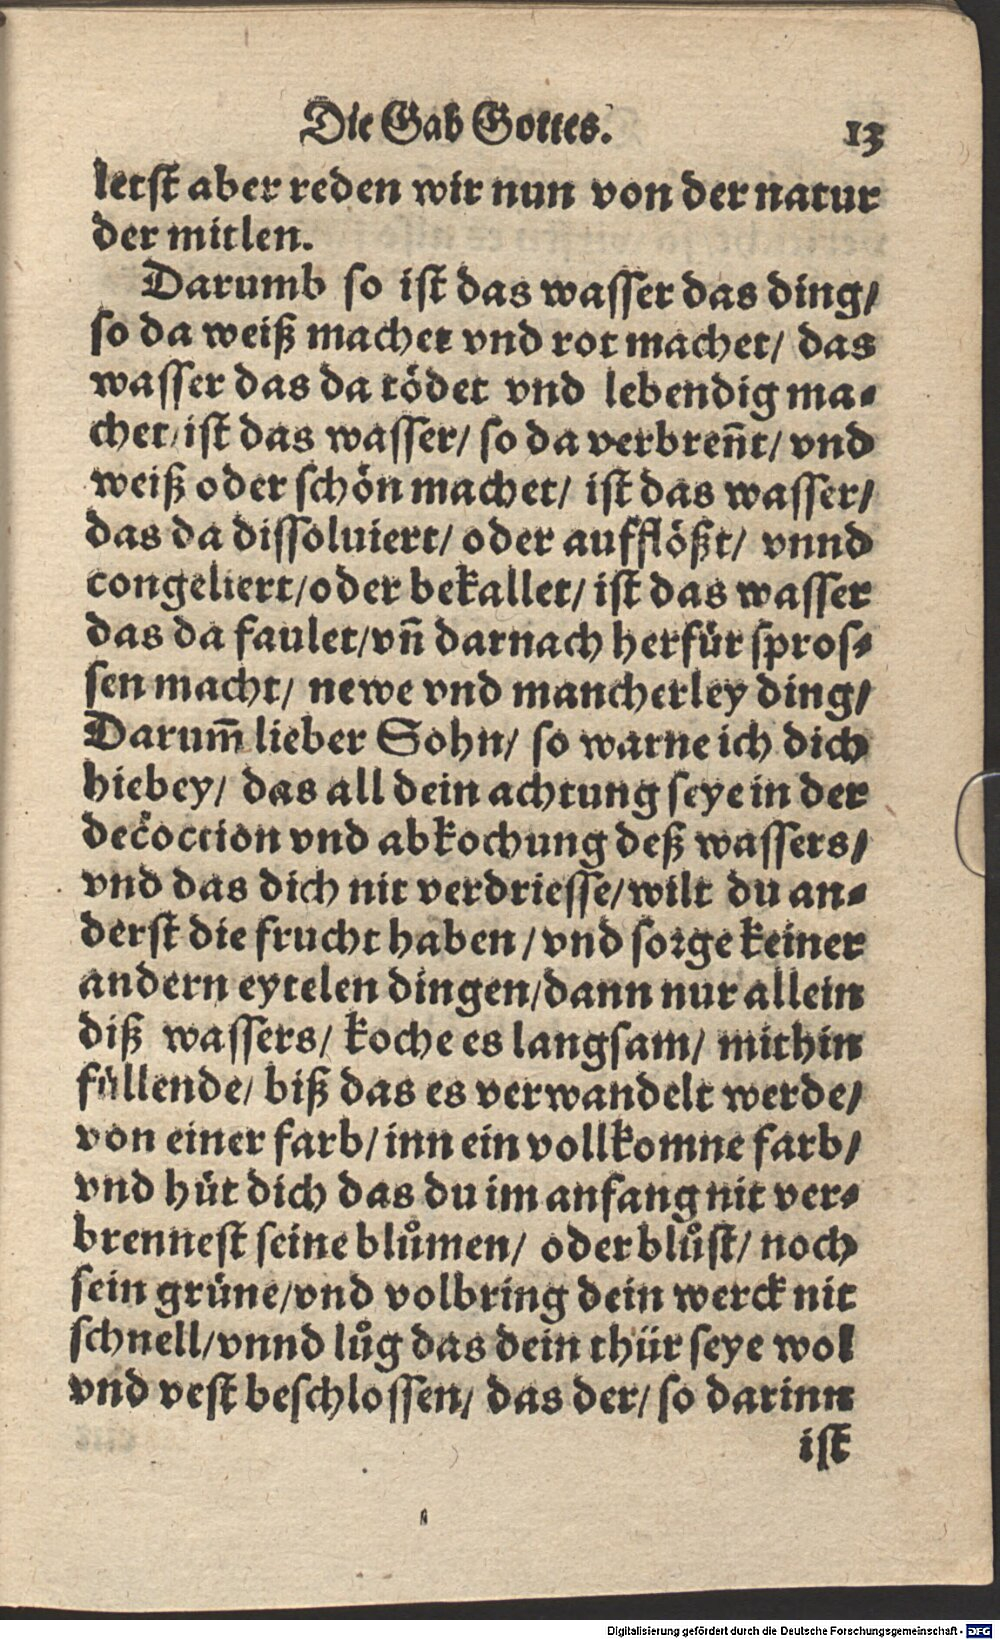 Die Gab Gottes. 13
letst aber reden wir nun von der natur
der mitlen.
Darumb so ist das wasser das ding/
so da weiß machet vnd rot machet/ das
wasser das da tödet vnd lebendig ma-
chet/ ist das wasser/ so da verbreñt/ vnd
weiß oder schön machet/ ist das wasser/
das da dissoluiert/ oder aufflößt/ vnnd
congeliert/ oder bekallet/ ist das wasser
das da faulet/ vñ darnach herfür spros-
sen macht/ newe vnd mancherley ding/
Darum̃ lieber Sohn/ so warne ich dich
hiebey/ das all dein achtung seye in der
decoction vnd abkochung deß wassers/
vnd das dich nit verdriesse/ wilt du an-
derst die frucht haben/ vnd sorge keiner
andern eytelen dingen/ dann nur allein
diß wassers/ koche es langsam/ mithin
füllende/ biß das es verwandelt werde/
von einer farb/ inn ein vollkomne farb/
vnd hüt dich das du im anfang nit ver-
brennest seine blůmen/ oder blůst/ noch
sein grüne/ vnd volbring dein werck nit
schnell/ vnnd lůg das dein thür seye wol
vnd vest beschlossen/ das der/ so darinn
ist
Digitalisierung gefördert durch die Deutsche Forschungsgemeinschaft - DFG